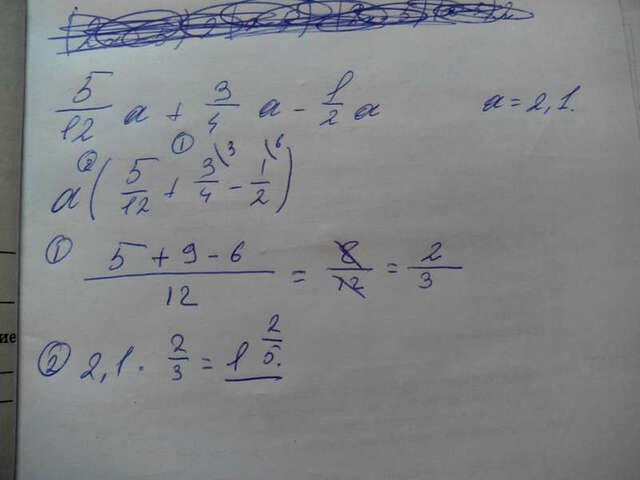 5/12 a + 3/4 a - 1/2 a a = 2,1.
a ② ( 5/12 + ① 3/4 \3 - 1/2 \6 )
① 5 + 9 - 6 / 12 = 8/12 = 2/3
② 2,1 · 2/3 = 1 2/5.
ие